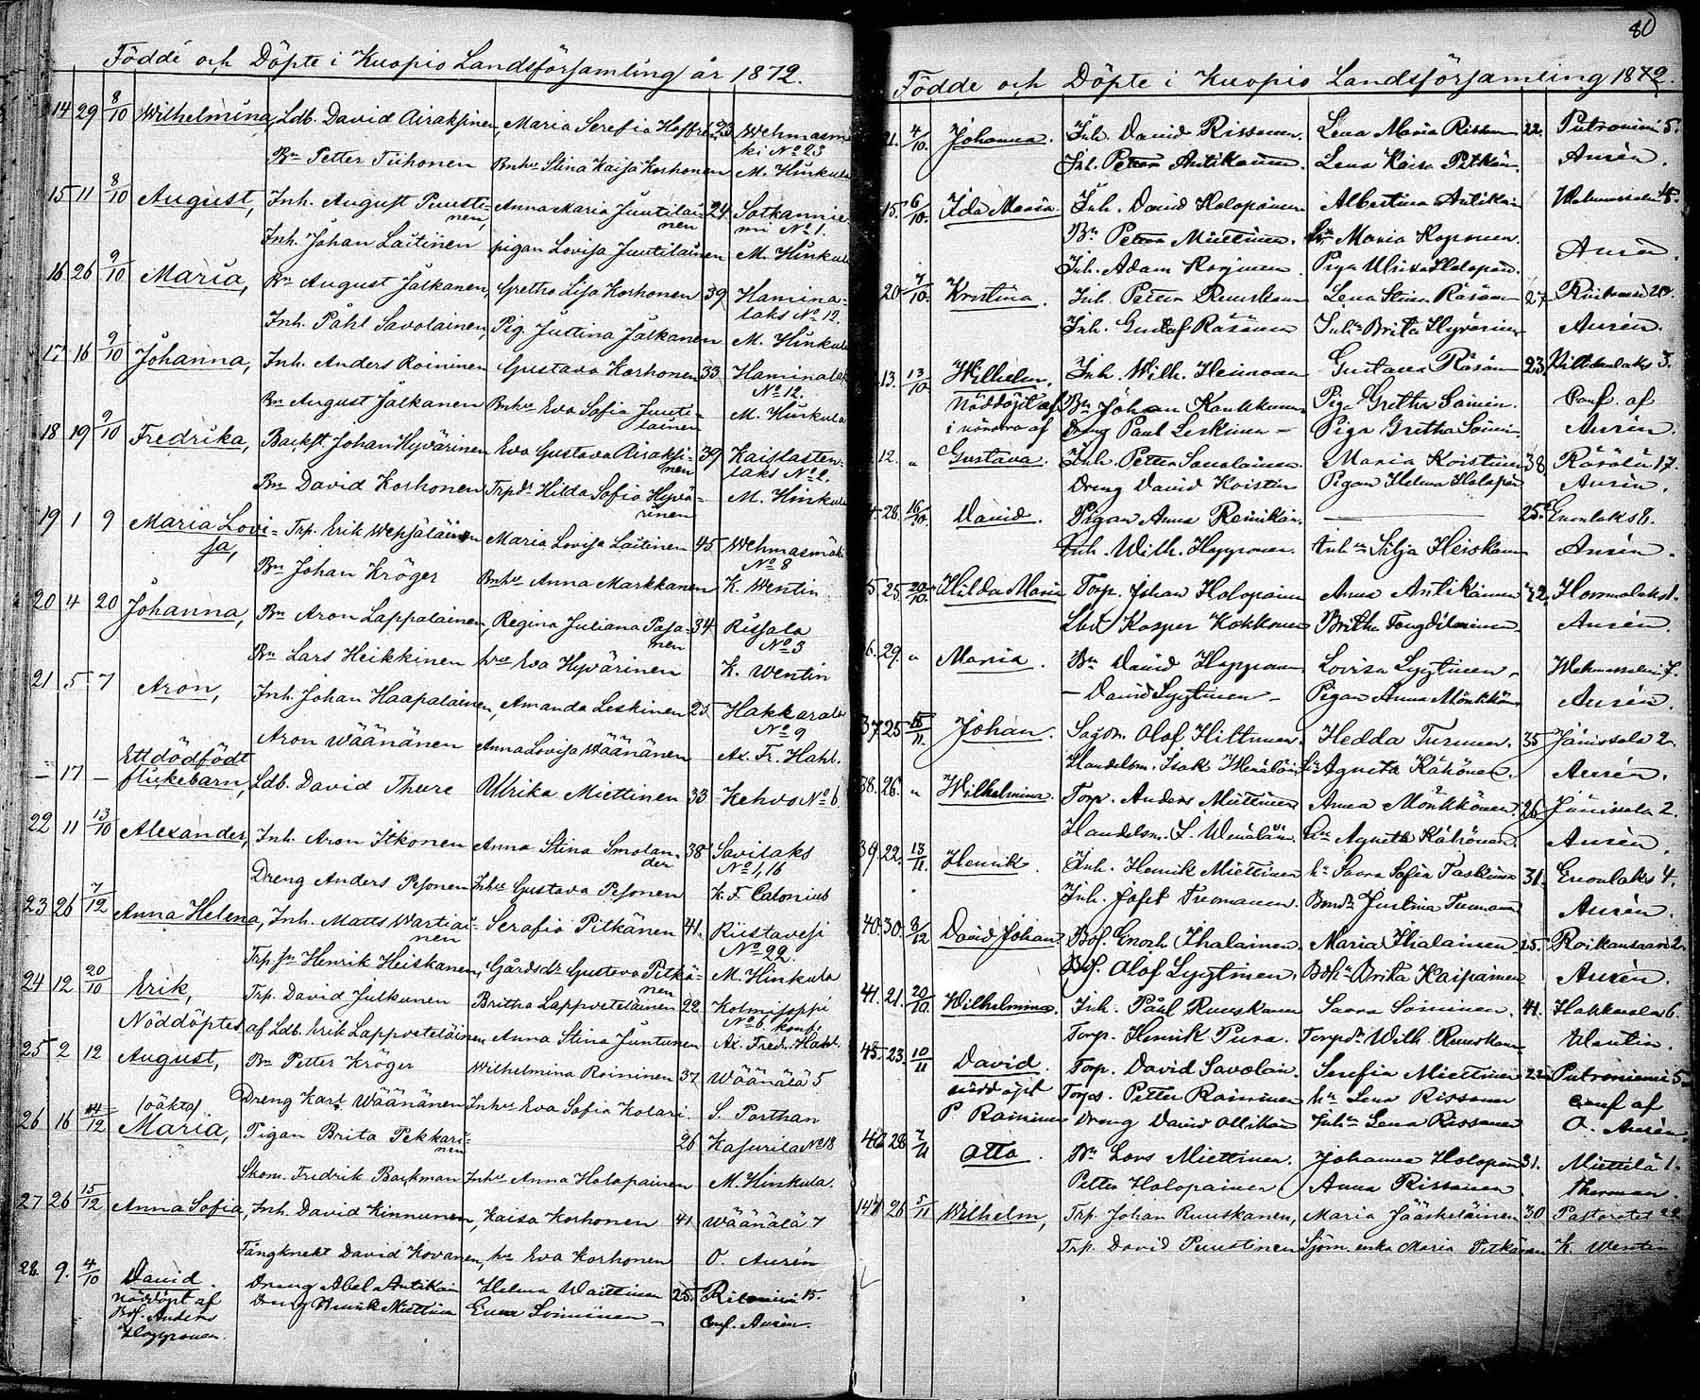 Födde och Döpte i Kuopio Landsförsamling år 1872.
14 29 8/10 Wilhelmina, Ldb. David Airaksinen, Maria Serefia Hoffrén 23 Wehmasmä-
ki No 23
Bn Petter Tiihonen Bnhu Stina Kaisa Korhonen M. Hinkula
15 11 8/10 August, Inh. August Puusti- Anna Maria Juutilai- 24 Sotkannie
nen, nen mi No 1.
Inh. Johan Laitinen pigan Lovisa Juutilainen M. Hinkula
16 26 9/10 Maria, Bn August Jalkanen, Gretha Lisa Korhonen 39 Hamina-
laks No 12.
Inh. Påhl Savolainen, Pig. Justina Jalkanen M. Hinkula
17 16 9/10 Johanna, Inh. Anders Roininen Gustava Korhonen 33 Haminalak
No 12.
Bn August Jalkanen Bnhu Eva Sofia Juuti- M. Hinkula
lainen
18 19 9/10 Fredrika, Backst. Johan Hyvärinen Eva Gustava Airaksi- 39 Kaislasten-
nen laks No 2.
Bn David Korhonen Trpdr Hilda Sofia Hyvä- M. Hinkula
rinen
19 1 9 Maria Lovi- Trp. Erik Wepsäläinen Maria Lovisa Laitinen 45 Wehmasmäki
sa, No 8
Bn Johan Kröger Bnhu Anna Markkanen K. Wentin
20 4 20 Johanna, Bn Aron Lappalainen, Regina Juliana Pasa- 34 Rissala
nen No 3
Bn Lars Heikkinen hru Eva Hyvärinen K. Wentin
21 5 7 Aron, Inh. Johan Haapalainen, Amanda Leskinen 25 Hakkarala
No 9
Aron Wäänänen Anna Lovisa Wäänänen Ax. Fr. Hahl.
Ett dödfödt
— 17 — flickebarn, Ldb. David Thure Ulrika Miettinen 33 Kehvo No 6
22 11 13/10 Alexander, Inh. Aron Itkonen Anna Stina Smolan- 38 Savilaks
der No 1, 16
Dreng Anders Pesonen Inhu Gustava Pesonen K. F. Calonius
23 26 7/12 Anna Helena, Inh. Matts Wartiai- Serafia Pitkänen 41. Riistavesi
nen No 22.
Trp. sn Henrik Heiskanen, Gårdsdr Gustava Pitkä- M. Hinkula
nen
24 12 20/10 Erik, Trp. David Julkunen Britha Lappveteläinen 22 Kolmisoppi
No 6 konf.
Nöddöptes af Ldb. Erik Lappveteläinen Anna Stina Juntunen Ax. Fred. Hahl.
25 2 12 August, Bn Petter Kröger Wilhelmina Roininen 37 Wäänälä 5
Dreng Karl Wäänänen Inhu Eva Sofia Kolari S. Porthan
(oäkta)
26 16 14/12 Maria, Pigan Brita Pekkari- 26 Kasurila No 18
nen
Skom. Fredrik Backman Inhu Anna Holopainen M. Hinkula.
27 26 15/12 Anna Sofia, Inh. David Kinnunen, Kaisa Korhonen 41 Wäänälä 7
Fångknekt David Kovanen, hu Eva Korhonen O. Aurén
28. 9. 4/10 David. Dreng Abel Antikain Helena Waittinen 25. 15.
nöddöpt af Dreng Henrik Miettinen Conf. Aurén.
Anders
Happonen.
80
Födde och Döpte i Kuopio Landsförsamling 1872.
21. 4/10. Johanna. Inh. David Rissanen. Lena Maria Rissanen 22. Putroniemi 5.
Inh. Petter Antikainen. Lena Kaisa Pitkän. Aurén.
15. 6/10. Ida Maria. Inh. David Holopainen Albertina Antikain
Bn Petter Miettinen. hn Maria Koponen. Aurén.
Inh. Adam Pigan Ulrika Holopain.
20. 7/10. Kristina. Inh. Petter Ruuskanen Lena Stina Räsänen 27.
Inh. Gustaf Räsänen Inhn Brita Hyvärinen Aurén.
13. 13/10. Wilhelm. Inh. Wilh. Heinonen Gustava Räsänen 23. 3.
Nöddöpt af Bn Johan Kaukkonen Piga Gretha Soinin. Conf. af
Dreng Paul Leskinen — Piga Gretha Soinin. Aurén.
12. „ Gustava. Inh. Petter Savolainen. Maria Koistinen 38 Räsälä 17.
Dreng David Koistin Pigan Helena Holopain Aurén.
4. 28. 16/10. David. Pigan Anna Reinikän. — 25. Enonlaks 8.
Inh. Wilh. Happonen. Inhn Silja Heiskanen Aurén.
5. 25. 20/10. Hilda Maria Torp. Johan Holopainen Anna Antikainen 42.
Kasper Kokkonen Aurén.
6. 29. „ Maria. Bn David Happonen Lovisa Lyytinen Wehmersalmi 7.
— David Lyytinen — Pigan Anna Mönkkön Aurén.
37 25 11. Johan. Olof Hiltunen. Hedda Turunen. 35 Jänissalo 2.
Handelsm. Isak Wenäläin hn Agneta Kähönen. Aurén.
38. 26. „ Wilhelmina. Torp. Anders Miettinen Anna Mönkkönen 26. Jänissalo 2.
Handelsm. I. Wenäläin. hn Agneta Kähönen. Aurén.
39 22. 13/11. Henrik. Inh. Henrik Miettinen hn Saara Sofia Taskinen 31. Enonlaks 4.
Inh. Josef Justina Aurén.
40. 30. 8/12 David Johan. Enoch Ihalainen. Maria Hialainen 25. Roikansaari 2.
Olof Lyytinen. Brita Kaipainen Aurén.
41. 21. 20/10. Wilhelmina. Inh. Påhl Ruuskanen Saara Soininen. 41. Hakkarala 6.
Torp. Henrik Pura. Torpdr Wilh. Ruuskan. Wentin.
45. 23. 10/11 David. Torp. David Savolain. Serefia Miettinen 22. Putroniemi 5
nöddöpt Torps. Petter Roininen hn Lena Rissanen conf af
P. Roininen Dreng David Ollikain Inhn Lena Rissanen O. Aurén.
46 28. 7/11 Otto. Bn Lars Miettinen. Johanna Holopain 31. Miettilä 1.
Petter Holopainen Anna Rissanen Therman.
147 26 5/11 Wilhelm, Trp. Johan Ruuskanen, Maria Jääskeläinen 30 Pastoratet 22
Trp. David Puustinen Sjöm. enka Maria Pitkänen K. Wentin